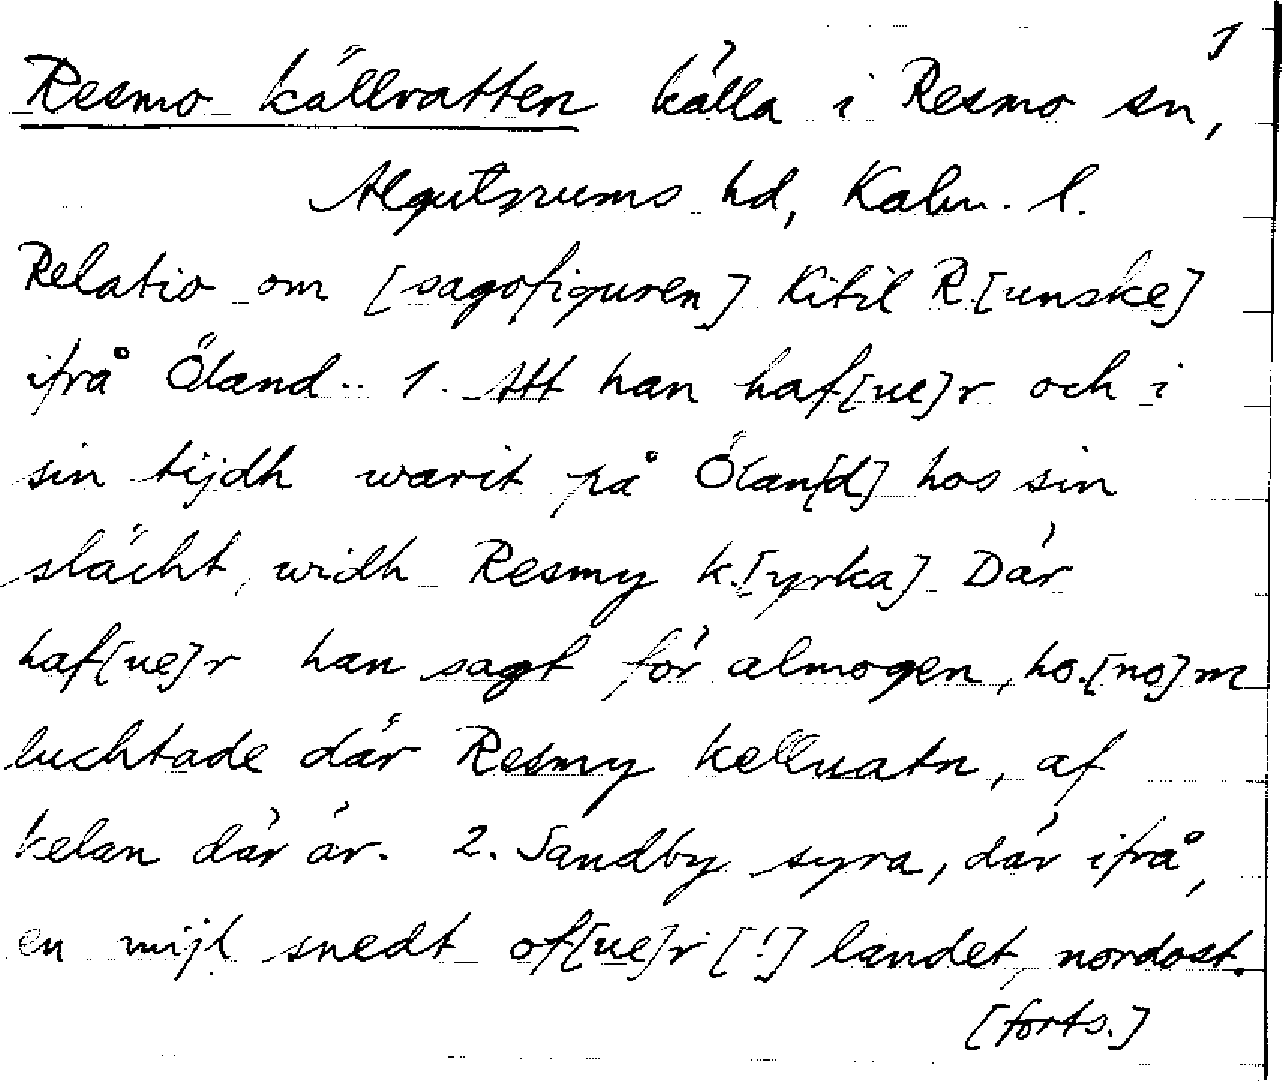 1
Resmo källvatten källa i Resmo sn,
Algutsrums hd, Kalm. l.
Relatio om [sagofiguren] Kitil R.[unske]
ifrå Öland.. 1. Att han haf[ue]r och i
sin tijdh warit på Ölan[d] hos sin
slächt, widh Resmy k.[yrka] Där
haf[ue]r han sagt för almogen, ho.[no]m
luchtade där Resmy kelluatn, af
kelan där är. 2. Sandby syra, där ifrå,
en mijl snedt of[ue]r [!] landet, nordost.
[forts.]